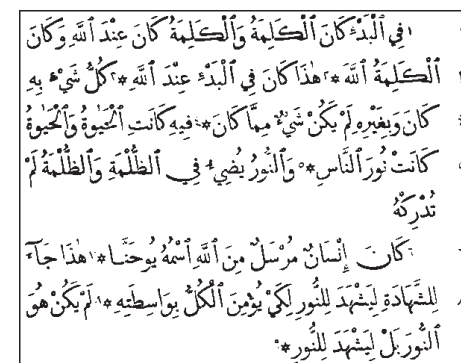 ١فِي ٱلْبَدْءِ كَانَ ٱلْكَلِمَةُ وَٱلْكَلِمَةُ كَانَ عِنْدَ ٱللّٰهِ وَكَانَ
ٱلْكَلِمَةُ ٱللّٰهَ *٢ هٰذَا كَانَ فِي ٱلْبَدْءِ عِنْدَ ٱللّٰهِ *٣ كُلُّ شَيْءٍ بِهِ
كَانَ وَبِغَيْرِهِ لَمْ يَكُنْ شَيْءٌ مِمَّا كَانَ *٤ فِيهِ كَانَتِ ٱلْحَيٰوةُ وَٱلْحَيٰوةُ
كَانَتْ نُورَ ٱلنَّاسِ *٥ وَٱلنُّورُ يُضِيءُ فِي ٱلظُّلْمَةِ وَٱلظُّلْمَةُ لَمْ
تُدْرِكْهُ
٦كَانَ إِنْسَانٌ مُرْسَلٌ مِنَ ٱللّٰهِ ٱسْمُهُ يُوحَنَّا *٧ هٰذَا جَآءَ
لِلشَّهَادَةِ لِيَشْهَدَ لِلنُّورِ لِكَيْ يُؤْمِنَ ٱلْكُلُّ بِوَاسِطَتِهِ *٨ لَمْ يَكُنْ هُوَ
ٱلنُّورَ بَلْ لِيَشْهَدَ لِلنُّورِ *